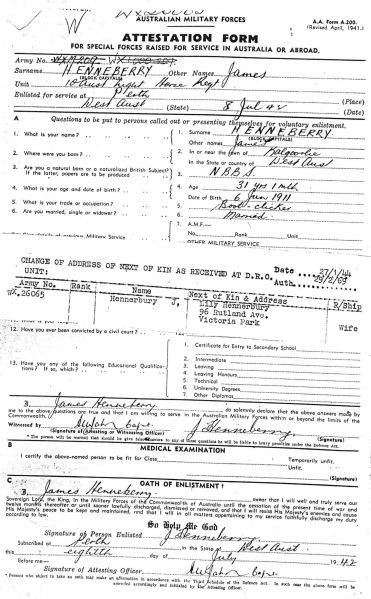 W
AUSTRALIAN MILITARY FORCES
A.A. Form A.200.
(Revised April, 1941.)
ATTESTATION FORM
FOR SPECIAL FORCES RAISED FOR SERVICE IN AUSTRALIA OR ABROAD.
Army No.
Surname HENNEBERRY Other Names James
(BLOCK CAPITALS)
Unit 10 Aust Light Horse Regt
Enlisted for service at Perth (Place)
West Aust (State) 8 Jul 42
A Questions to be put to persons called out or presenting themselves for voluntary enlistment.
1. What is your name? 1. Surname HENNEBERRY
(BLOCK CAPITALS)
Other names James
2. Where were you born? 2. In or near the town of Kalgoorlie
in the State or country of West Aust
3. Are you a natural born or a naturalized British Subject? 3. N.B.B.S.
If the latter, papers are to be produced
4. What is your age and date of birth? 4. Age 31 yrs 1 mth
Date of Birth 6 Jun 1911
5. What is your trade or occupation? 5.
6. Are you married, single or widower? 6. Married
7. A.M.F.—
No. Rank
Military Service OTHER MILITARY SERVICE
CHANGE OF ADDRESS OF NEXT OF KIN AS RECEIVED AT D.R.O. Date 27/1/44
UNIT: Auth. 29/2/63
Army No. Rank Name Next of Kin & Address R/Ship
WX.26065 Hennerbury J. Lily Hennerbury Wife
96 Rutland Ave.
Victoria Park
12. Have you ever been convicted by a civil court?
13. Have you any of the following Educational Qualifications? If so, which?
1. Certificate for Entry to Secondary School
2. Intermediate
3. Leaving
4. Leaving Honours
5. Technical
6. University Degrees
7. Other Diplomas
I, James Henneberry do solemnly declare that the above answers made by
me to the above questions are true and that I am willing to serve in the Australian Military Forces within or beyond the limits of the
Commonwealth.
Witnessed by J Henneberry
(Signature of Attesting or Witnessing Officer) (Signature)
* The person will be warned that should he give false answers to any of these questions he will be liable to heavy penalties under the Defence Act.
B MEDICAL EXAMINATION
I certify the above-named person to be fit for Class Temporarily unfit.
Unfit.
(Signature)
C OATH OF ENLISTMENT †
I, James Henneberry swear that I will well and truly serve our
Sovereign Lord, the King, in the Military Forces of the Commonwealth of Australia until the cessation of the present time of war and
twelve months thereafter or until sooner lawfully discharged, dismissed or removed, and that I will resist His Majesty's enemies and cause
His Majesty's peace to be kept and maintained, and that I will in all matters appertaining to my service faithfully discharge my duty
according to law.
So Help Me God!
Signature of Person Enlisted J Henneberry
Subscribed at Perth in the State of West Aust
this eighth day of July 1942
Before me—
Signature of Attesting Officer
† Persons who object to take an oath may make an affirmation in accordance with the Third Schedule of the Defence Act. In such case the above form will be
amended accordingly and initialled by the Attesting Officer.